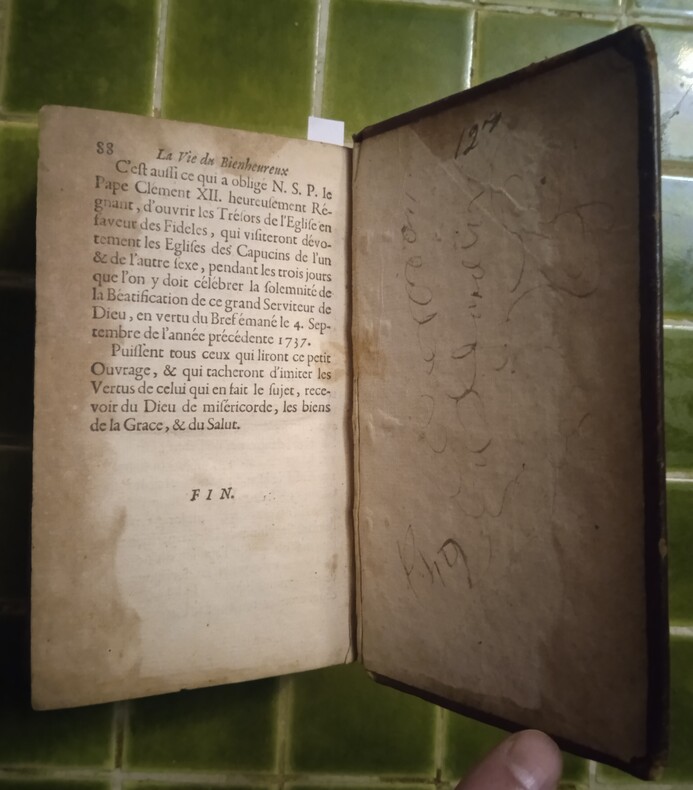 88 La Vie du Bienheureux
C'est aussi ce qui a obligé N. S. P. le
Pape Clément XII. heureusement Ré-
gnant, d'ouvrir les Trésors de l'Eglise en
faveur des Fideles, qui visiteront dévo-
tement les Eglises des Capucins de l'un
& de l'autre sexe, pendant les trois jours
que l'on y doit célébrer la solemnité de
la Béatification de ce grand Serviteur de
Dieu, en vertu du Bref émané le 4. Sep-
tembre de l'année précédente 1737.
Puissent tous ceux qui liront ce petit
Ouvrage, & qui tacheront d'imiter les
Vertus de celui qui en fait le sujet, rece-
voir du Dieu de miséricorde, les biens
de la Grace, & du Salut.
FIN.